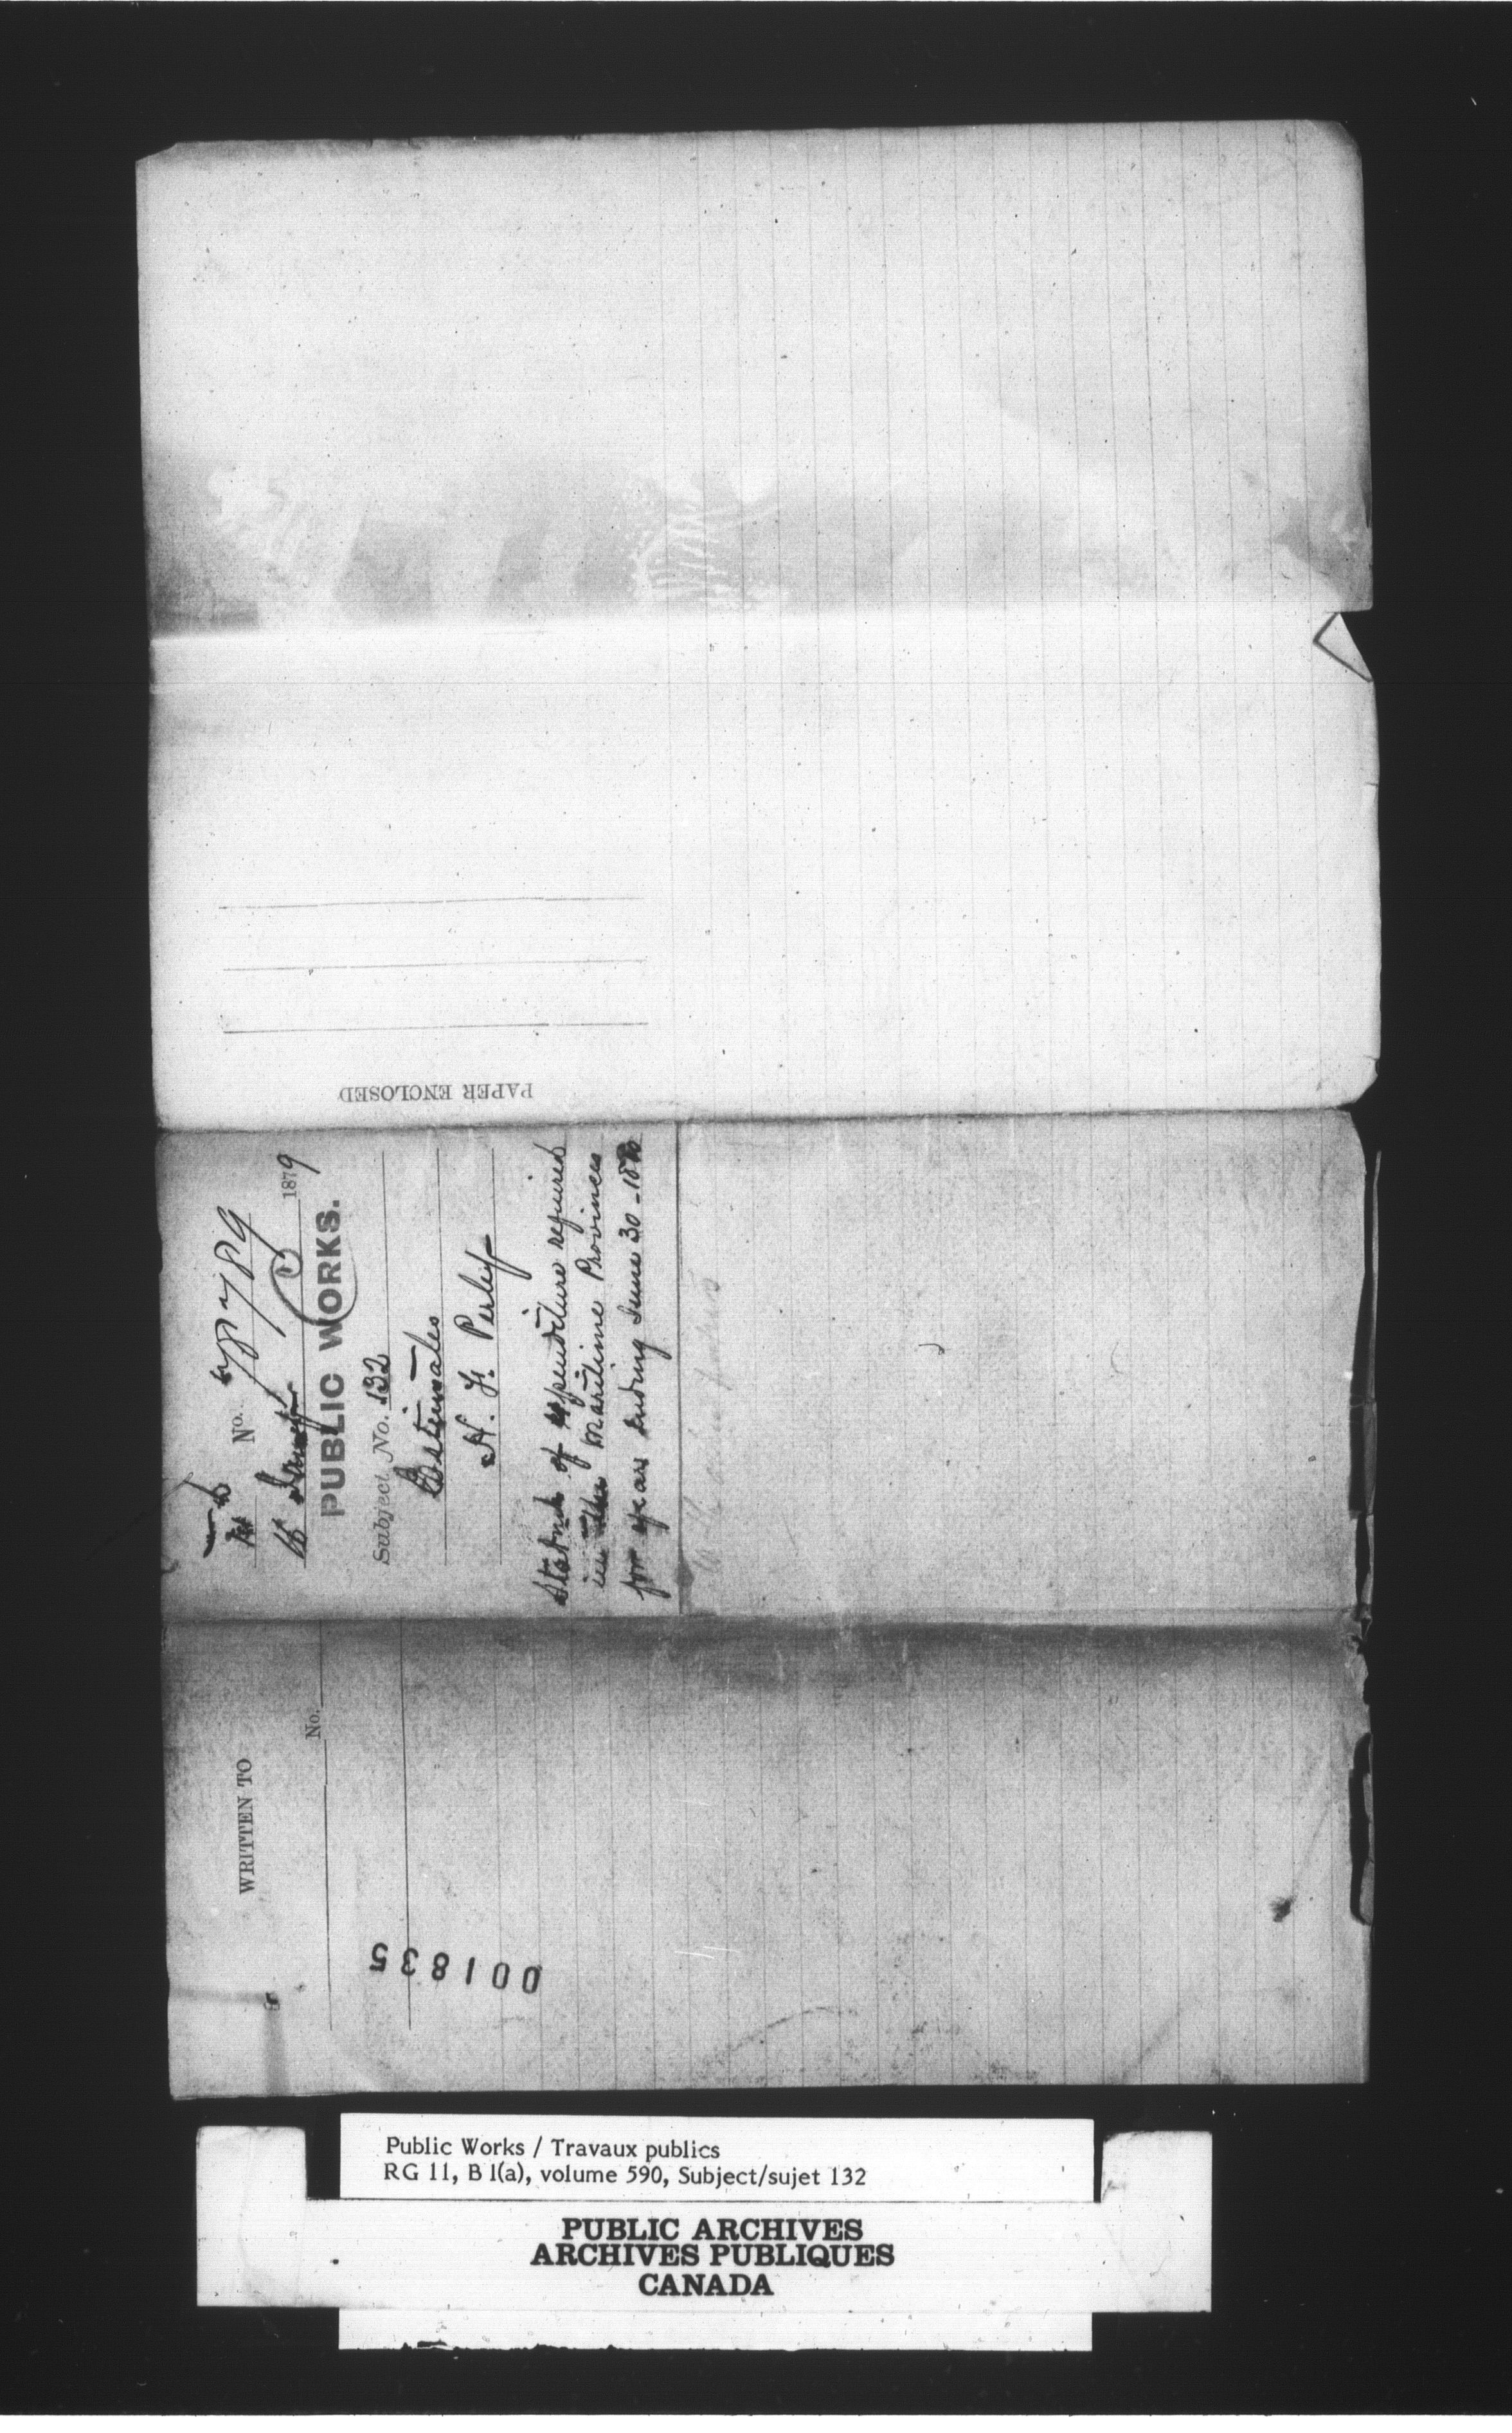 PAPER ENCLOSED
No. 78789
16 Jany 1879
PUBLIC WORKS.
Subject No. 132
Estimates
H. F. Perley
Statmt of expenditure required
in the Maritime Provinces
for year ending June 30 - 1880
WRITTEN TO
No.
001835
Public Works / Travaux publics
RG 11, B 1(a), volume 590, Subject/sujet 132
PUBLIC ARCHIVES
ARCHIVES PUBLIQUES
CANADA